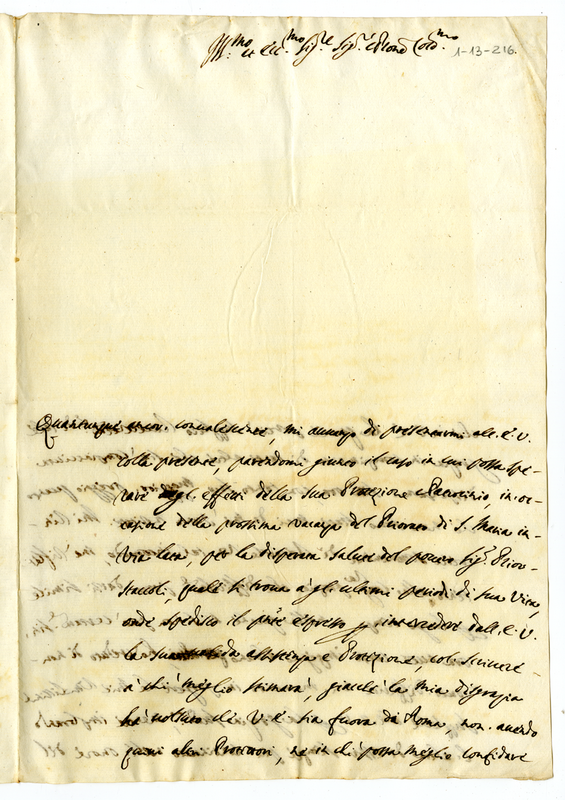 Ill.mo et Ecc.mo Sig.re Sig.r e Prone Col.mo
1-13-216.
Quantunque ancor. convalescente, mi avanzo di presentarmi all. E. V.
colla presente, parendomi giunto il caso in cui possa spe-
rare gl. effetti della sua Protezione e Patrocinio, in oc-
casione della prossima vacanza del Priorato di S. Maria in-
Via lata, per la disperata salute del povero Sig.r
quale si trova à gl. ultimi periodi di sua vita,
onde spedisco il pñte espresso p intercedere dall. E. V.
la sua assistenza e Protezione col. scrivere
à chi meglio stimarà, giacchè la mia disgrazia
hà voluto che V. E. sia fuora da Roma, non. avendo
quivi altri Protettori, ne in chi possa meglio confidare